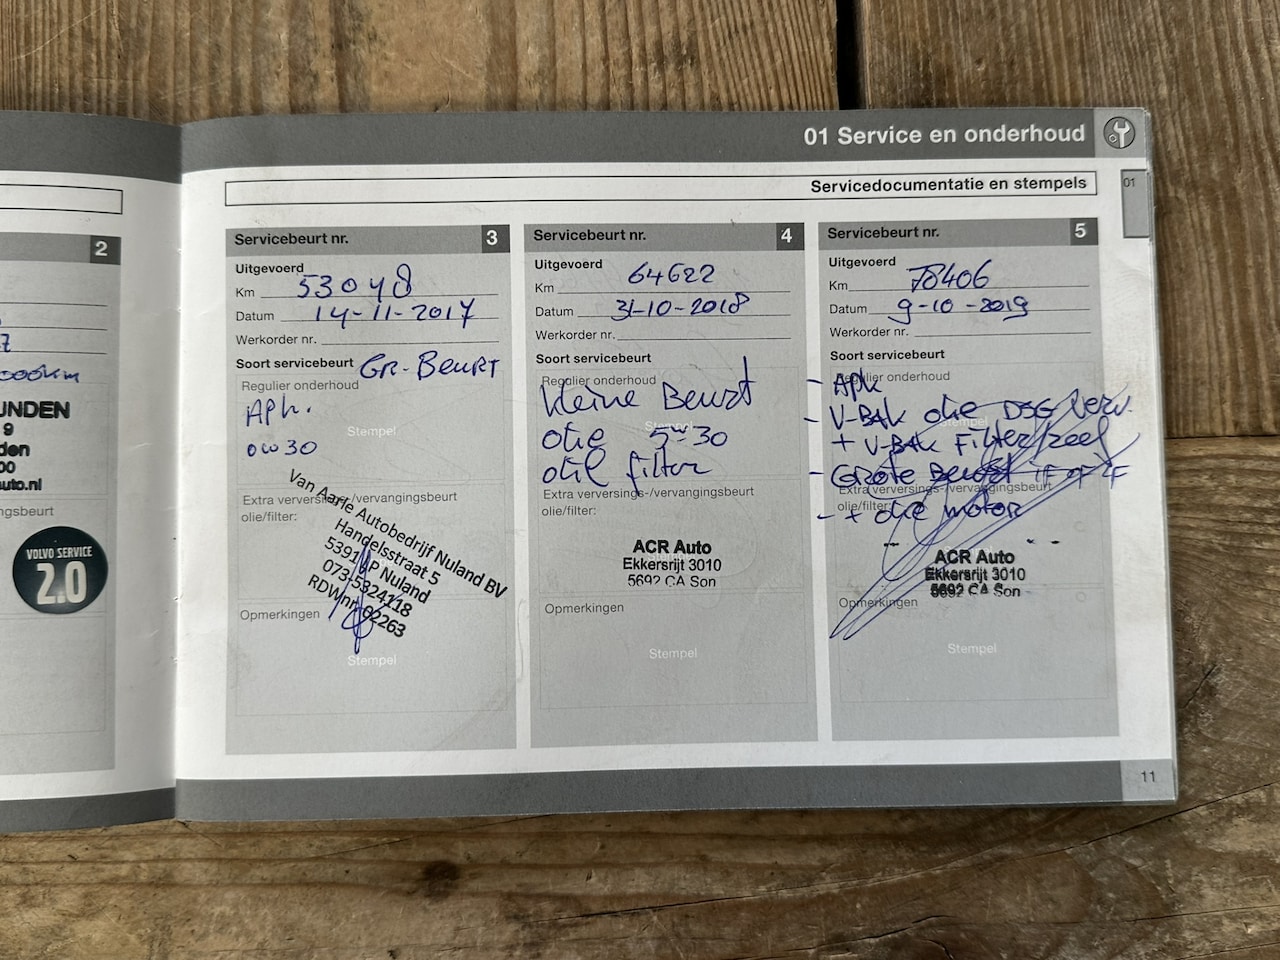 01 Service en onderhoud
Servicedocumentatie en stempels
01
2
000km
UNDEN
9
den
00
uto.nl
ngsbeurt
VOLVO SERVICE
2.0
Servicebeurt nr. 3
Uitgevoerd
Km 53048
Datum 14-11-2017
Werkorder nr.
Soort servicebeurt GR-BEURT
Regulier onderhoud
APk.
0w30
Stempel
Extra verversings-/vervangingsbeurt
olie/filter:
Van Aarle Autobedrijf Nuland BV
Handelsstraat 5
5391 VP Nuland
073-5324118
RDWnr. 02263
Opmerkingen
Stempel
Servicebeurt nr. 4
Uitgevoerd
Km 64622
Datum 31-10-2018
Werkorder nr.
Soort servicebeurt
Regulier onderhoud
kleine Beurt
Stempel
olie 5w30
olie filter
Extra verversings-/vervangingsbeurt
olie/filter:
ACR Auto
Ekkersrijt 3010
5692 CA Son
Opmerkingen
Stempel
Servicebeurt nr. 5
Uitgevoerd
Km 78406
Datum 9-10-2019
Werkorder nr.
Soort servicebeurt
Regulier onderhoud
- APk
- V-BAk olie DSG Verv.
+ V-BAk Filter
- GROTE Beurt
Extra verversings-/vervangingsbeurt
olie/filter:
- + olie motor
ACR Auto
Ekkersrijt 3010
5692 CA Son
Opmerkingen
Stempel
11